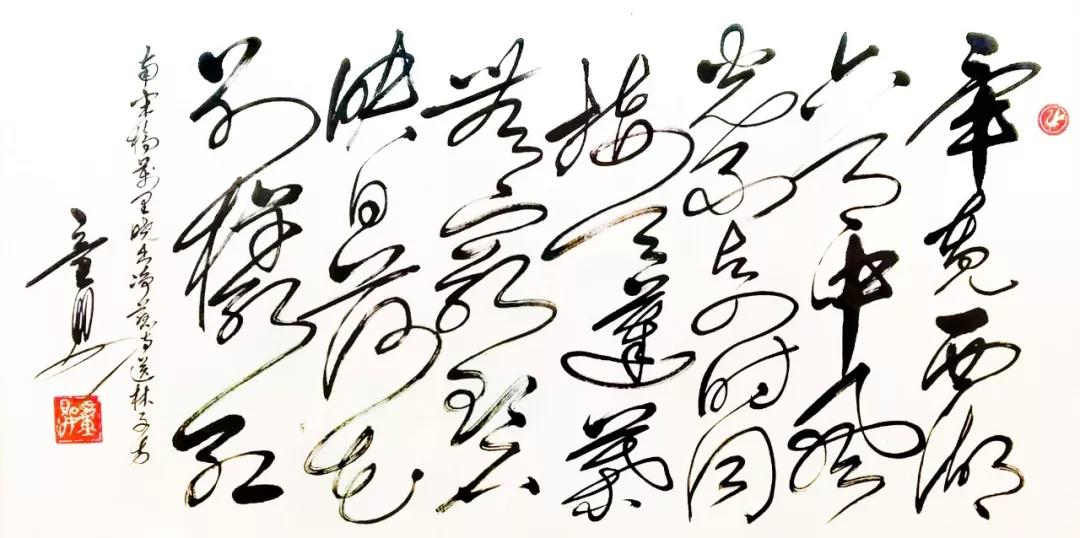 畢竟西湖
六月中風
光不與四時同
接天蓮葉
無窮碧
映日荷花
別樣紅
南宋楊萬里曉出淨慈寺送林子方
童